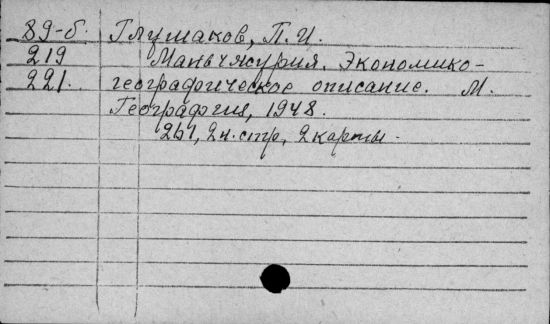 89-б. Глушаков, П.И.
219 Маньчжурия. Экономико-
221. географическое описание. М.
География, 1948.
261, 2н.стр, 2карты.